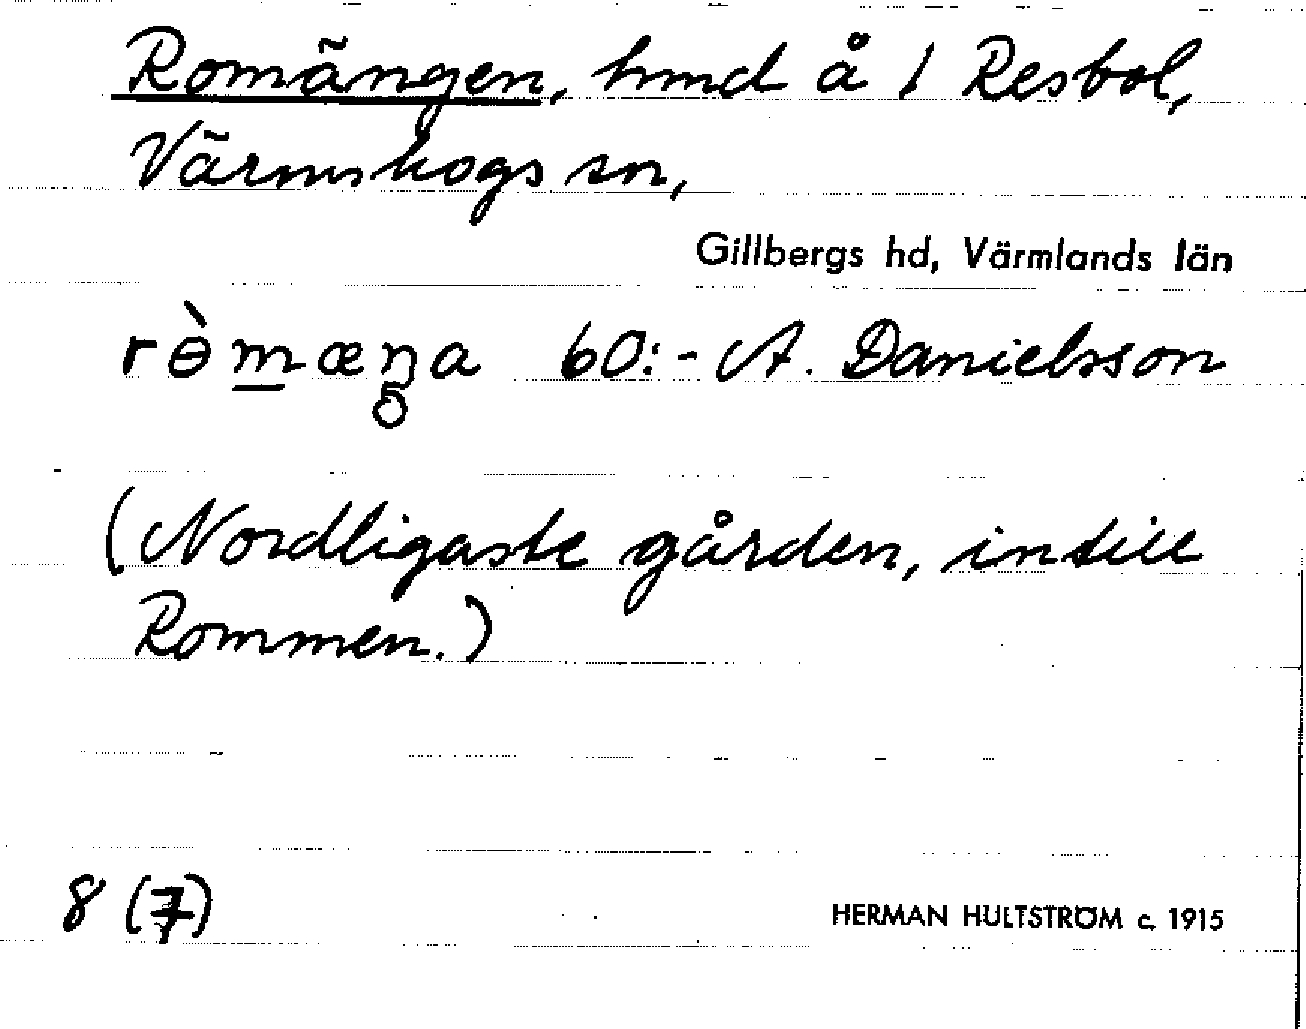 Romängen, hmd å 1 Resbol,
Värmskogs sn,
Gillbergs hd, Värmlands län
rɵ̀m̲æŋa 60:- A. Danielsson
(Nordligaste gården, intill
Rommen.)
8 (7)
HERMAN HULTSTRÖM c. 1915